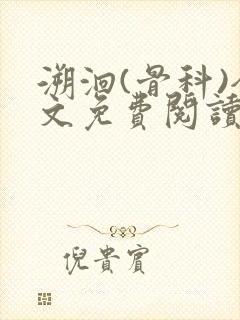 溯洄(骨科)
文免費閱讀
倪貴賓